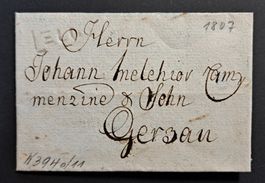 1807
Herrn
Johann Melchior Cam
menzind & Sohn
Gersau